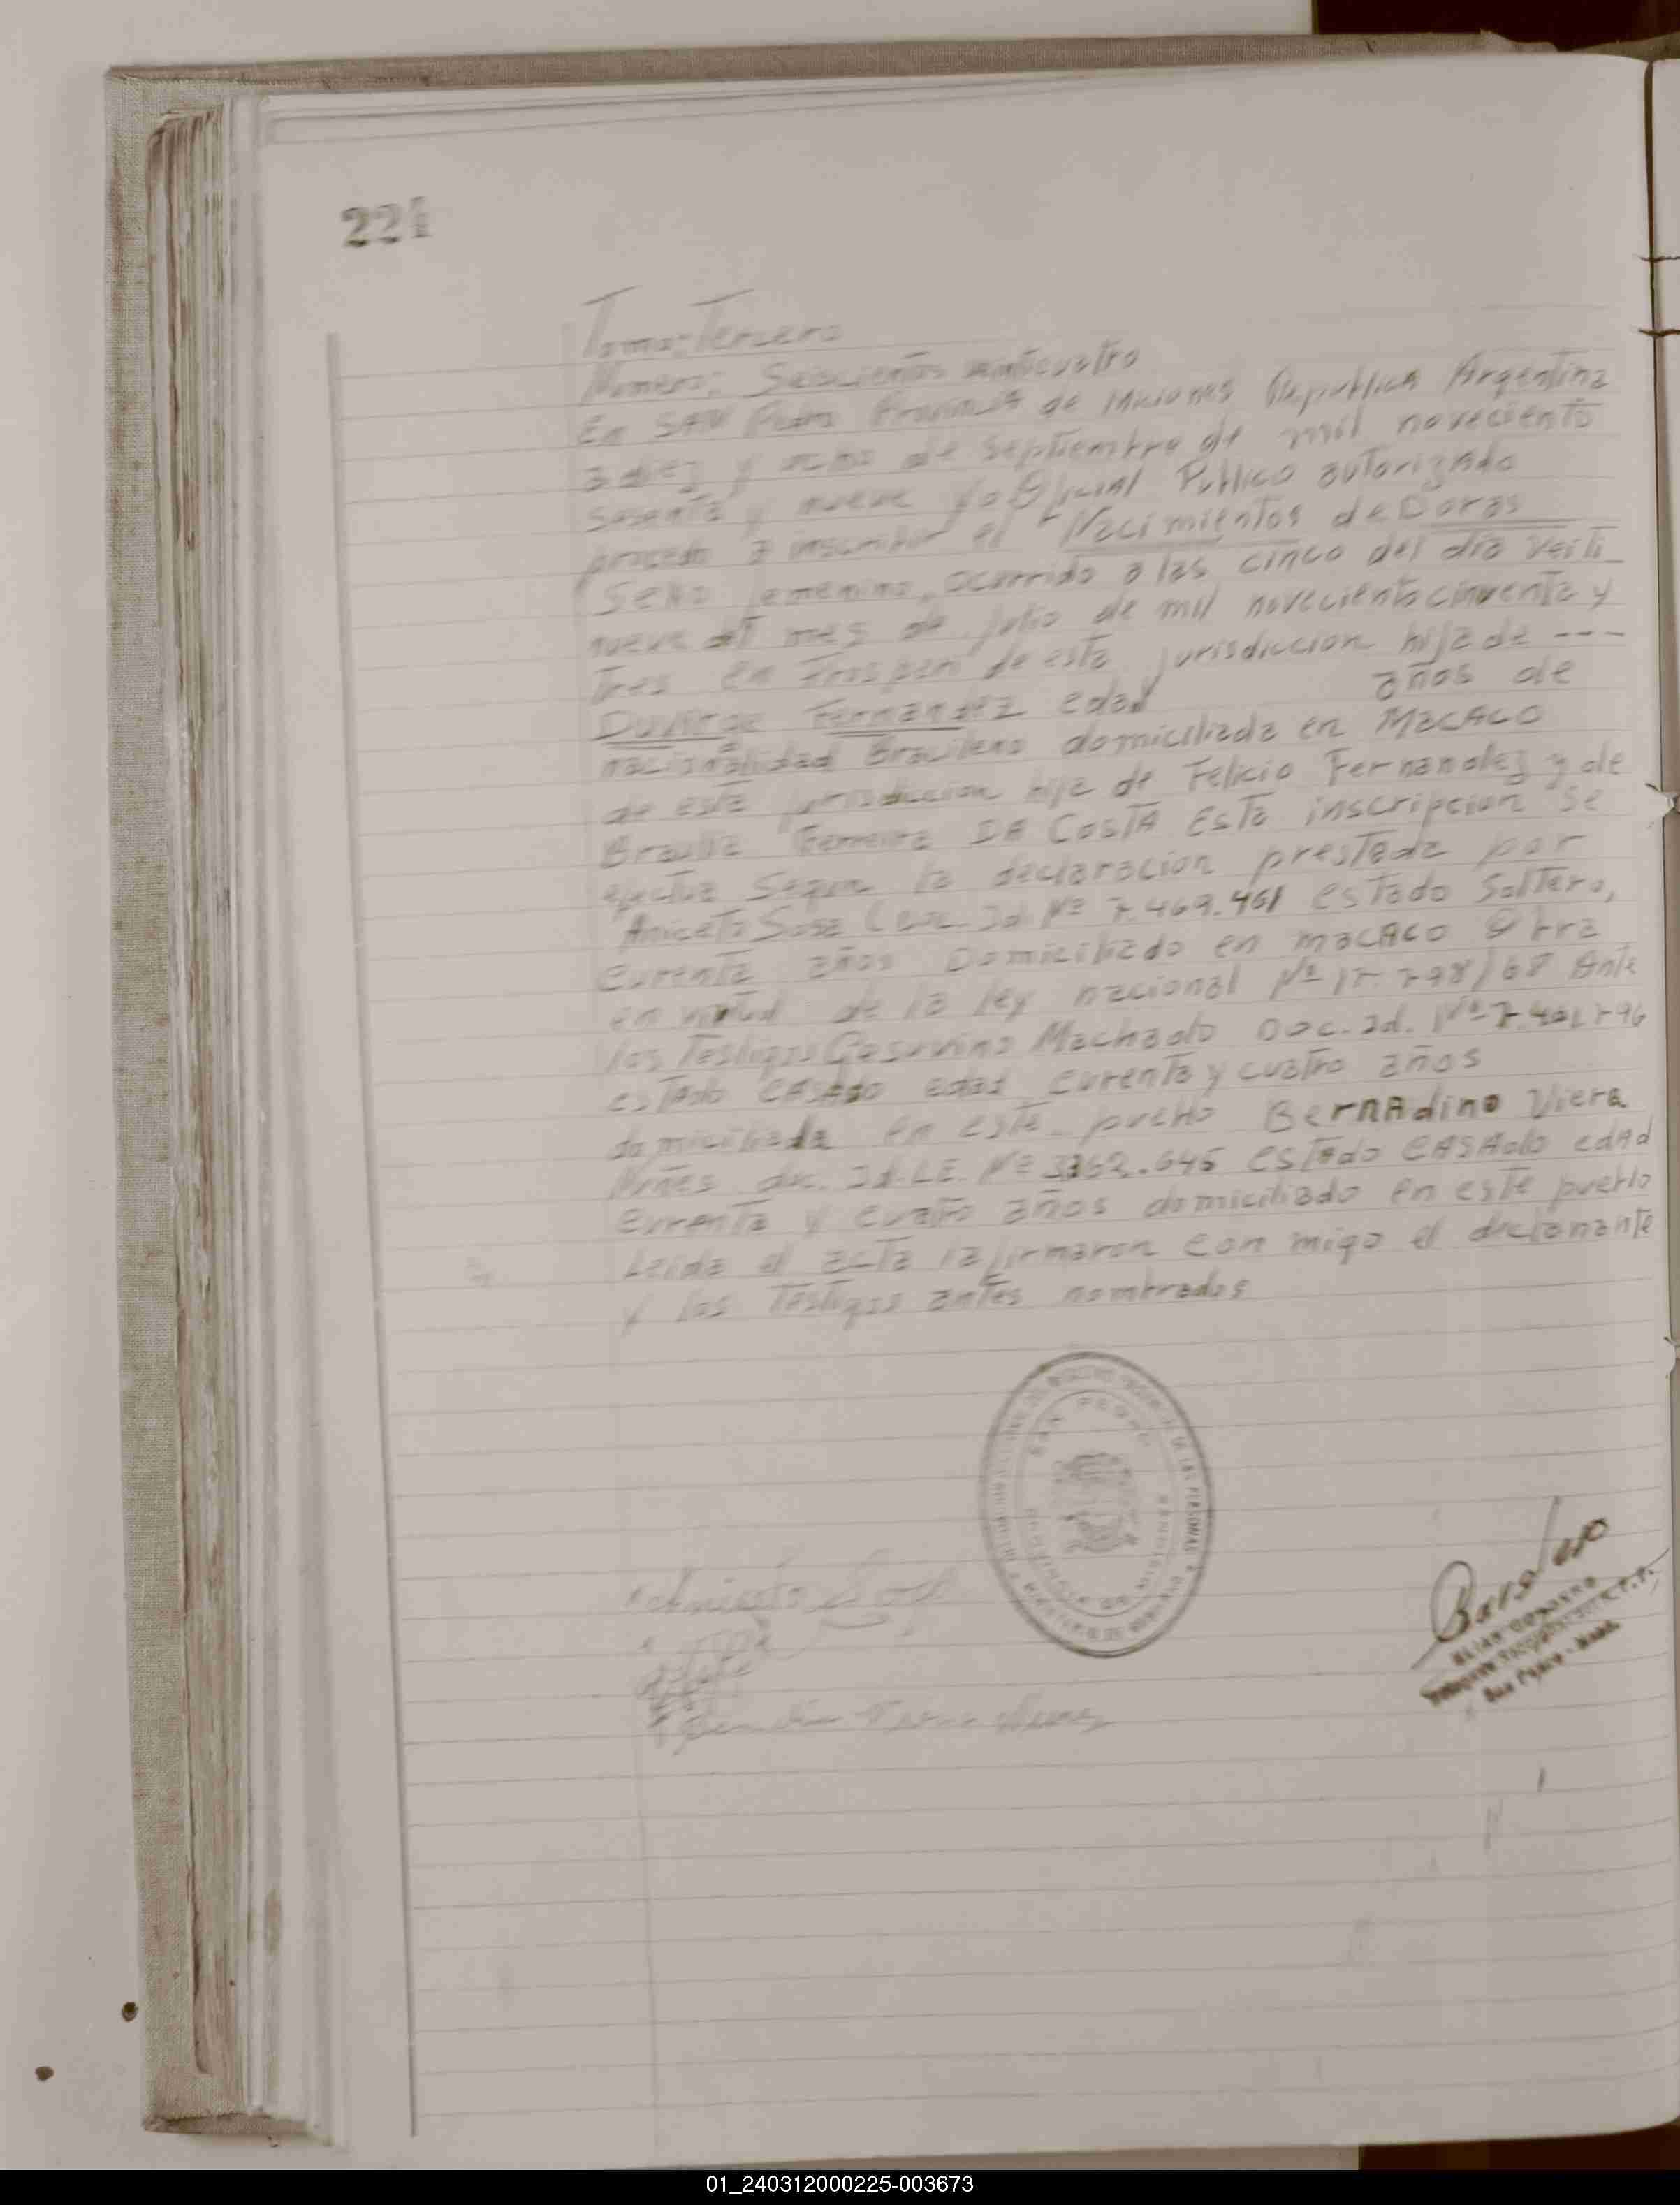 224
Tomo: Tercero
Número: Seiscientos veinticuatro
En SAN Pedro Provincia de Misiones Republica Argentina
a diez y ocho de Septiembre de mil noveciento
sesenta y nueve yo Oficial Publico autorizado
procedo a inscribir el Nacimientos de Doras
Sexo femenino, ocorrido a las cinco del dia veiti
nueve del mes de julio de mil novecientocinventa y
tres en de esta jurisdiccion hija de ---
Duvirge Fernandez edad años de
nacionalidad Brasilera domiciliada en MacACO
de esta jurisdiccion hija de Felicio Fernandez y de
Braulia Ferreira DA CosTA Esta inscripcion se
efectua segun la declaracion prestada por
Aniceto Sosa (Doc. Id. Nº 7.469.461 estado Soltero,
curenta años Domiciliado en macACO Obra
en virtud de la ley nacional Nº 17.798/68 Ante
los Testigos Machado Doc. Id. Nº
estado CASADO edad curenta y cuatro años
domiciliada en este pueblo BernAdino Viera
Nuñes doc. Id. L.E. Nº estado CASAdo edAd
curenta y cuatro años domiciliado en este pueblo
Leida el acta la firmaron con migo el declarante
y los Testigos antes nombrados
SAN PEDRO
DE LAS PERSONAS
Aniceto Sosa
San Pedro - Mnes.
01_240312000225-003673